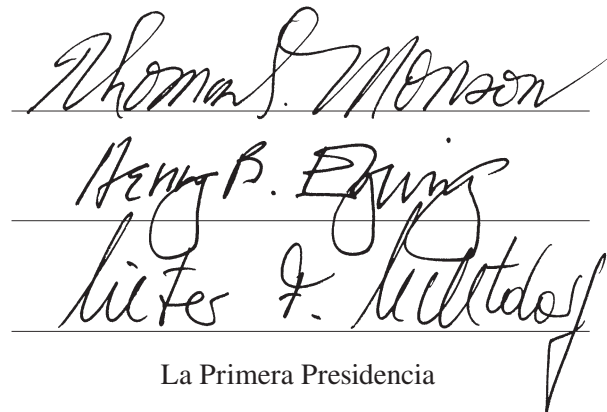 Thomas S. Monson
Henry B. Eyring
Dieter F. Uchtdorf
La Primera Presidencia